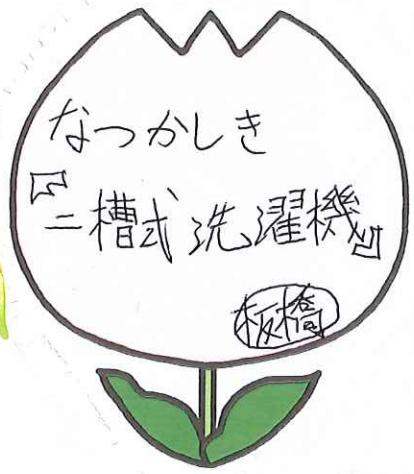 なつかしき
『二槽式洗濯機』
板橋